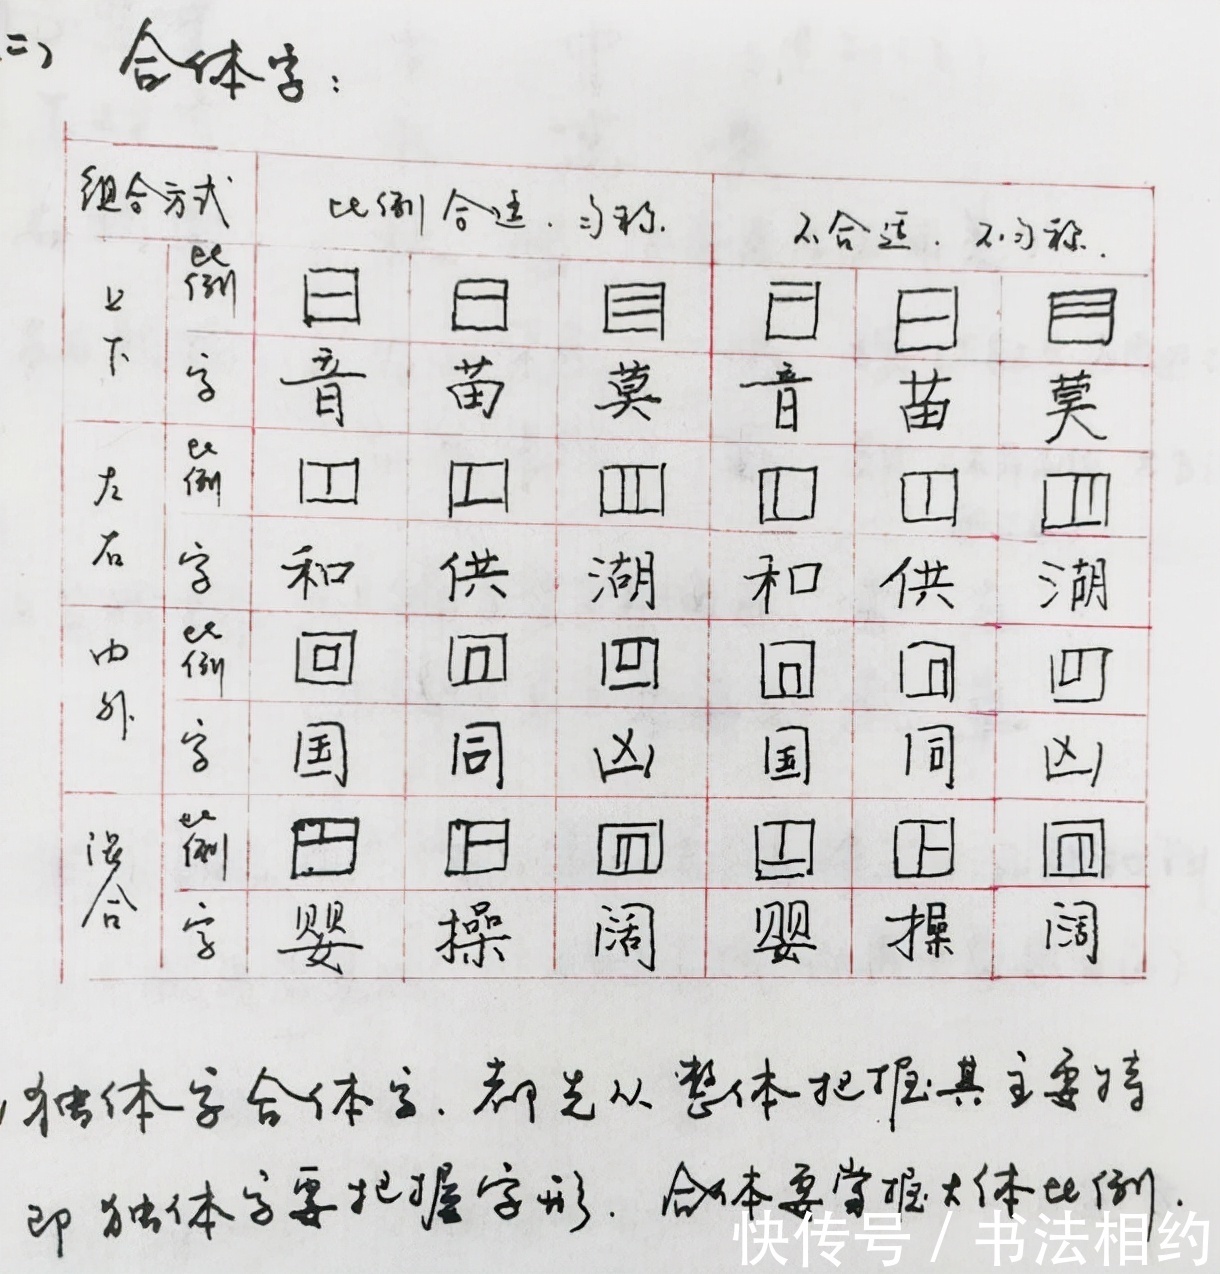 二、 合体字：
组合方式 比例合适.匀称. 不合适.不匀称.
上下 比例
字 音 苗 莫 音 苗 莫
左右 比例
字 和 供 湖 和 供 湖
内外 比例
字 国 同 凶 国 同 凶
混合 比例
字 婴 操 阔 婴 操 阔
独体字合体字.都先从整体把握其主要特
即独体字要把握字形.合体要掌握大体比例.
快传号 / 书法相约